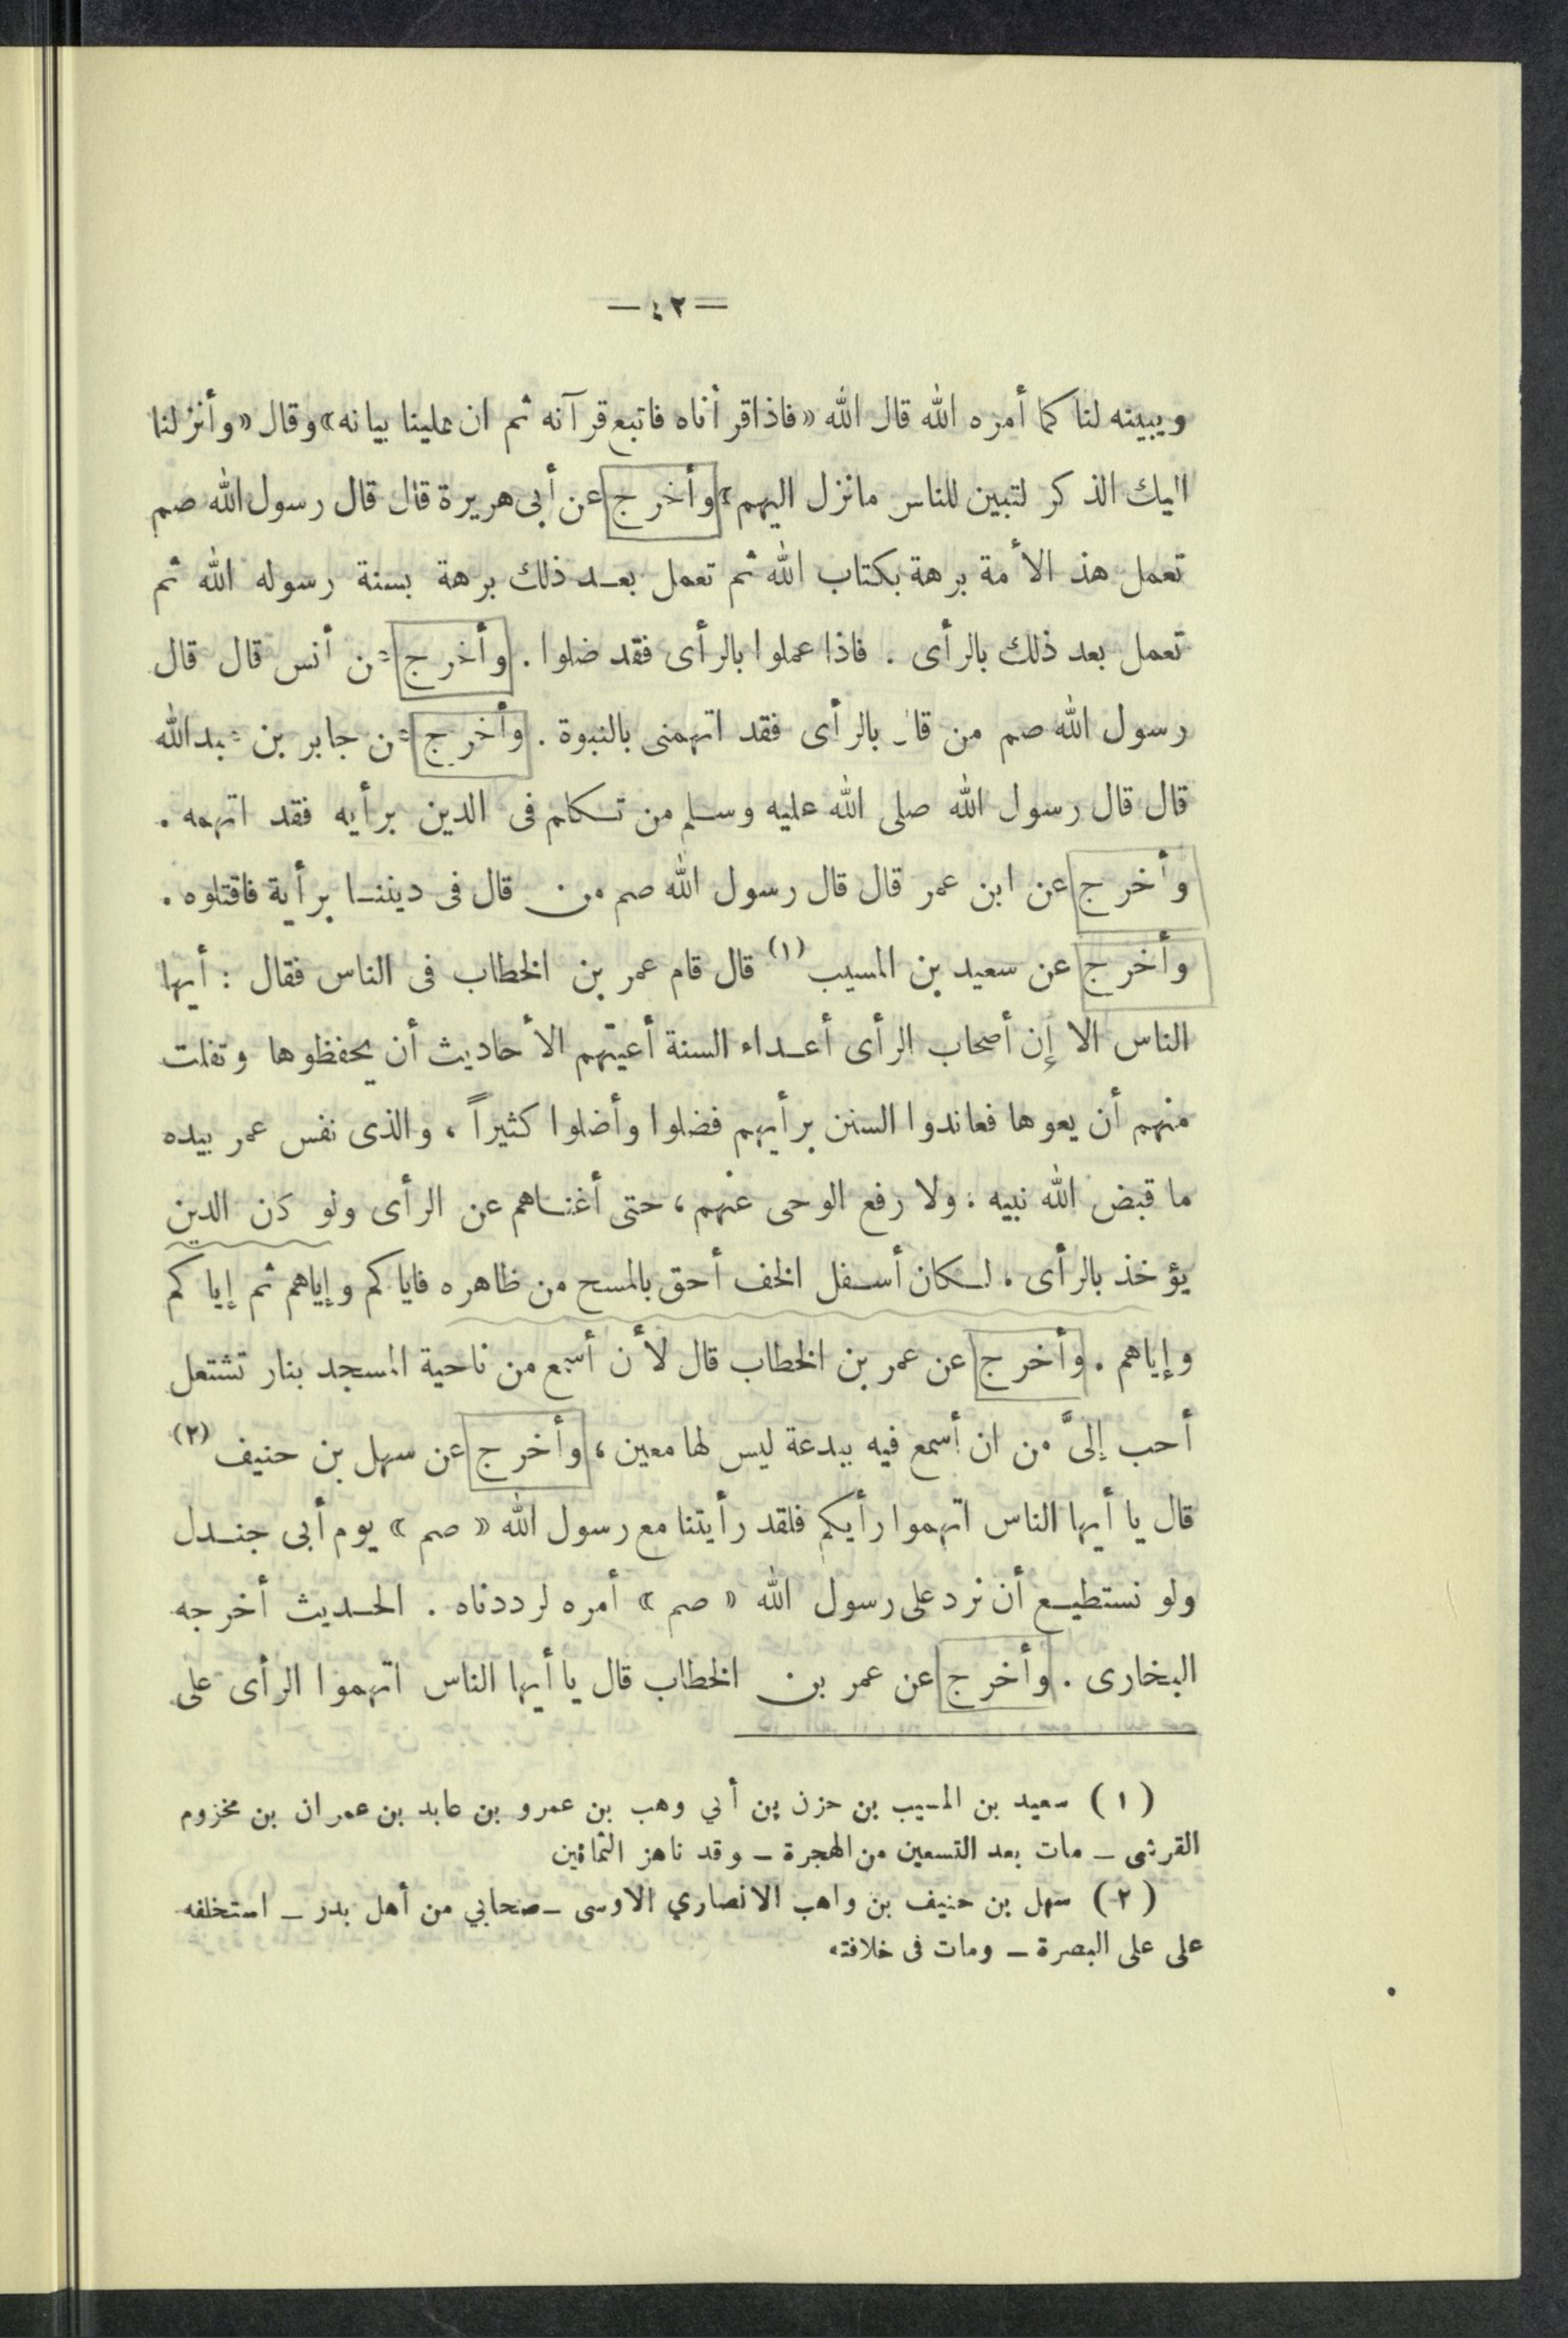 — ٤٢ —
ويبينه لنا كما أمره الله قال الله «فاذاقرأناه فاتبع قرآنه ثم ان علينا بيانه» وقال «وأنزلنا
اليك الذكر لتبين للناس مانزل اليهم» وأخرج عن أبى هريرة قال قال رسول الله صم
تعمل هذ الأمة برهة بكتاب الله ثم تعمل بعد ذلك برهة بسنة رسوله الله ثم
تعمل بعد ذلك بالرأى . فاذا عملوا بالرأى فقد ضلوا . وأخرج عن أنس قال قال
رسول الله صم من قال بالرأى فقد اتهمنى بالنبوة . وأخرج عن جابر بن عبدالله
قال قال رسول الله صلى الله عليه وسلم من تكلم فى الدين برأيه فقد اتهمه .
وأخرج عن ابن عمر قال قال رسول الله صم من قال فى ديننا برأية فاقتلوه .
وأخرج عن سعيد بن المسيب (١) قال قام عمر بن الخطاب فى الناس فقال : أيها
الناس الا إن أصحاب الرأى أعداء السنة أعيتهم الأحاديث أن يحفظوها وتفلت
منهم أن يعوها فعاندوا السنن برأيهم فضلوا وأضلوا كثيراً ، والذى نفس عمر بيده
ما قبض الله نبيه . ولا رفع الوحى عنهم ، حتى أغناهم عن الرأى ولو كان الدين
يؤخذ بالرأى . لكان أسفل الخف أحق بالمسح من ظاهره فاياكم وإياهم ثم إياكم
وإياهم . وأخرج عن عمر بن الخطاب قال لأن أسمع من ناحية المسجد بنار تشتعل
أحب إلىَّ من ان أسمع فيه ببدعة ليس لها معين ، وأخرج عن سهل بن حنيف (٢)
قال يا أيها الناس اتهموا رأيكم فلقد رأيتنا مع رسول الله « صم » يوم أبى جندل
ولو نستطيع أن نرد على رسول الله « صم » أمره لرددناه . الحديث أخرجه
البخارى . وأخرج عن عمر بن الخطاب قال يا أيها الناس اتهموا الرأى على
(١) سعيد بن المسيب بن حزن بن أبي وهب بن عمرو بن عابد بن عمران بن مخزوم
القرشى – مات بعد التسعين من الهجرة – وقد ناهز الثمانين
(٢) سهل بن حنيف بن واهب الانصاري الاوسى – صحابي من أهل بدر – استخلفه
على على البصرة – ومات فى خلافته